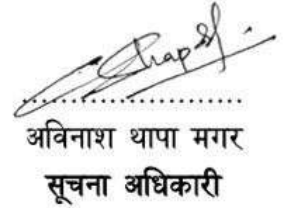 अविनाश थापा मगर
सूचना अधिकारी